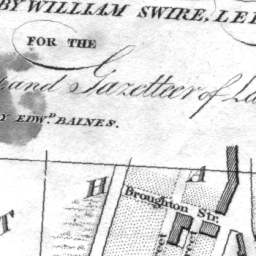 BY WILLIAM SWIRE, LE
FOR THE
and Gazetteer of La
BY EDWD. BAINES.
H
A
Broughton Str.
T